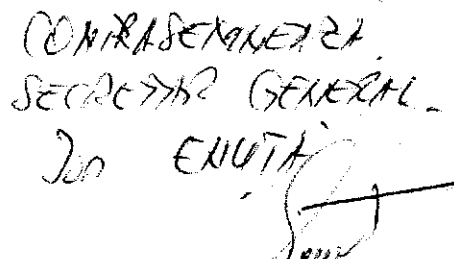 CONTRASEMNEAZĂ
SECRETAR GENERAL
Ion ENUȚĂ